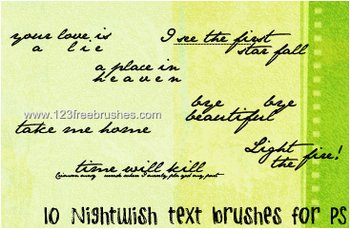 your love is
a lie
I see the first
star fall
a place in
heaven
www.123freebrushes.com
bye bye
beautiful
take me home
Light
the fire!
time will kill
10 Nightwish text brushes for PS